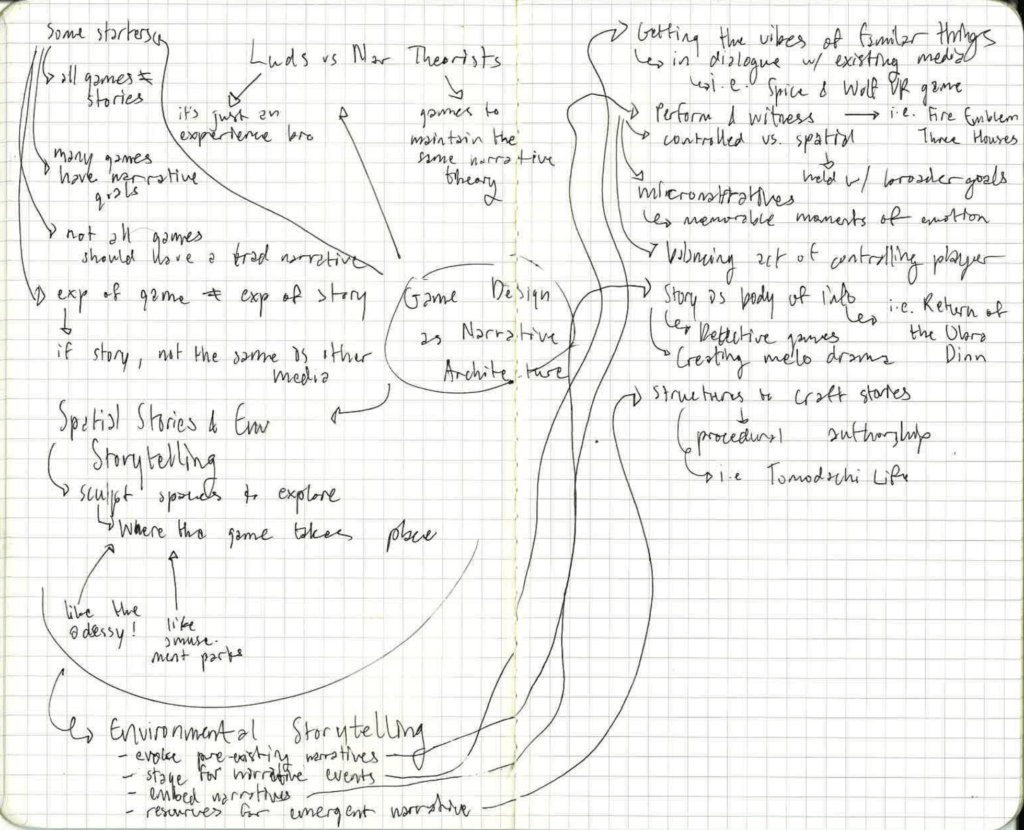 Some starters
all games ≠
stories
many games
have narrative
goals
not all games
should have a trad narrative
exp of game ≠ exp of story
if story, not the same as other
media
Luds vs Nar Theorists
it's just an
experience bro
games to
maintain the
same narrative
theory
Game Design
as Narrative
Architecture
Spatial Stories & Env
Storytelling
sculpt spaces to explore
Where the game takes place
like the
Odessy!
like
amuse-
ment parks
Environmental Storytelling
- evoke pre-existing narratives
- stage for narrative events
- embed narratives
- resources for emergent narrative
Getting the vibes of familar things
in dialogue w/ existing media
i.e. Spice & Wolf VR game
Perform & witness → i.e. Fire Emblem
Three Houses
controlled vs. spatial
held w/ broader goals
micronarratives
memorable moments of emotion
balancing act of controlling player
Story as body of info
i.e. Return of
the Obra
Dinn
Detective games
Creating melo drama
Structures to craft stories
procedural authorship
i.e Tomodachi Life